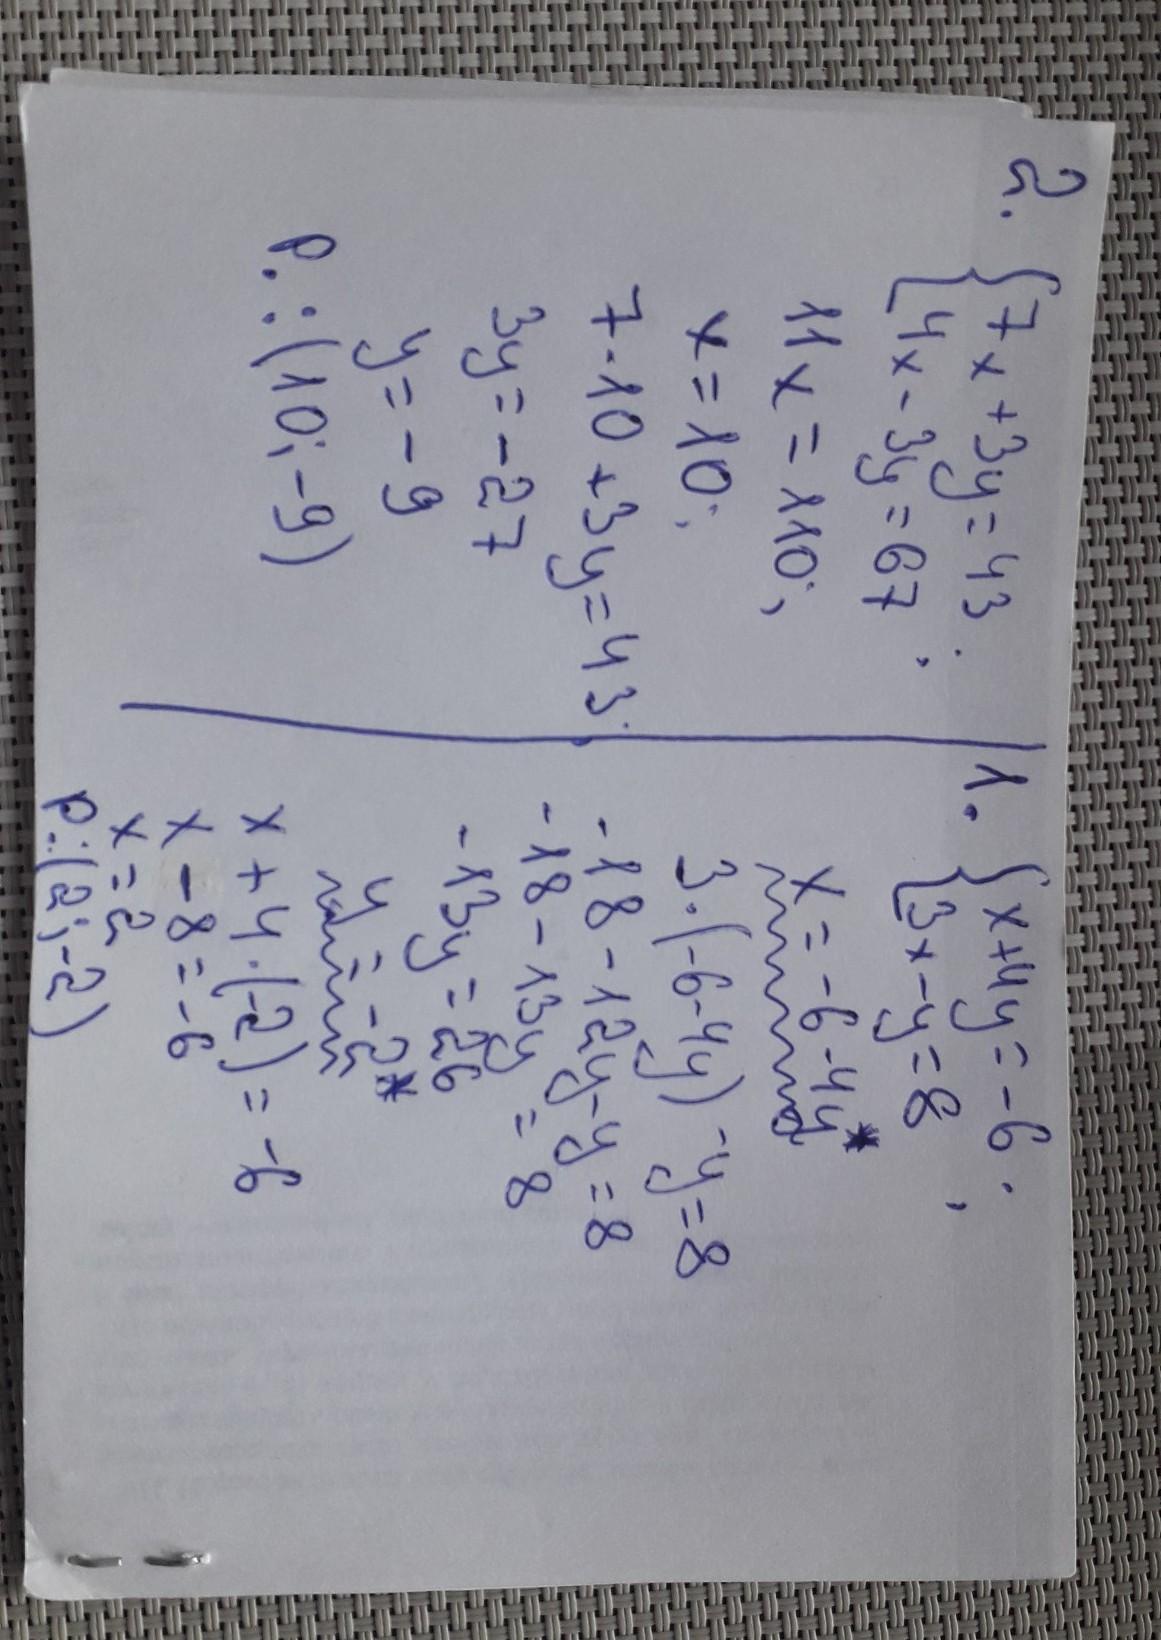 2. {7x+3y=43
4x-3y=67;
11x=110;
x=10;
7·10+3y=43;
3y=-27
y=-9
р.:(10;-9)
1. {x+4y=-6;
3x-y=8
x=-6-4y*
3·(-6-4y)-y=8
-18-12y-y=8
-18-13y=8
-13y=26
y=-2*
x+4·(-2)=-6
x-8=-6
x=2
р.:(2;-2)